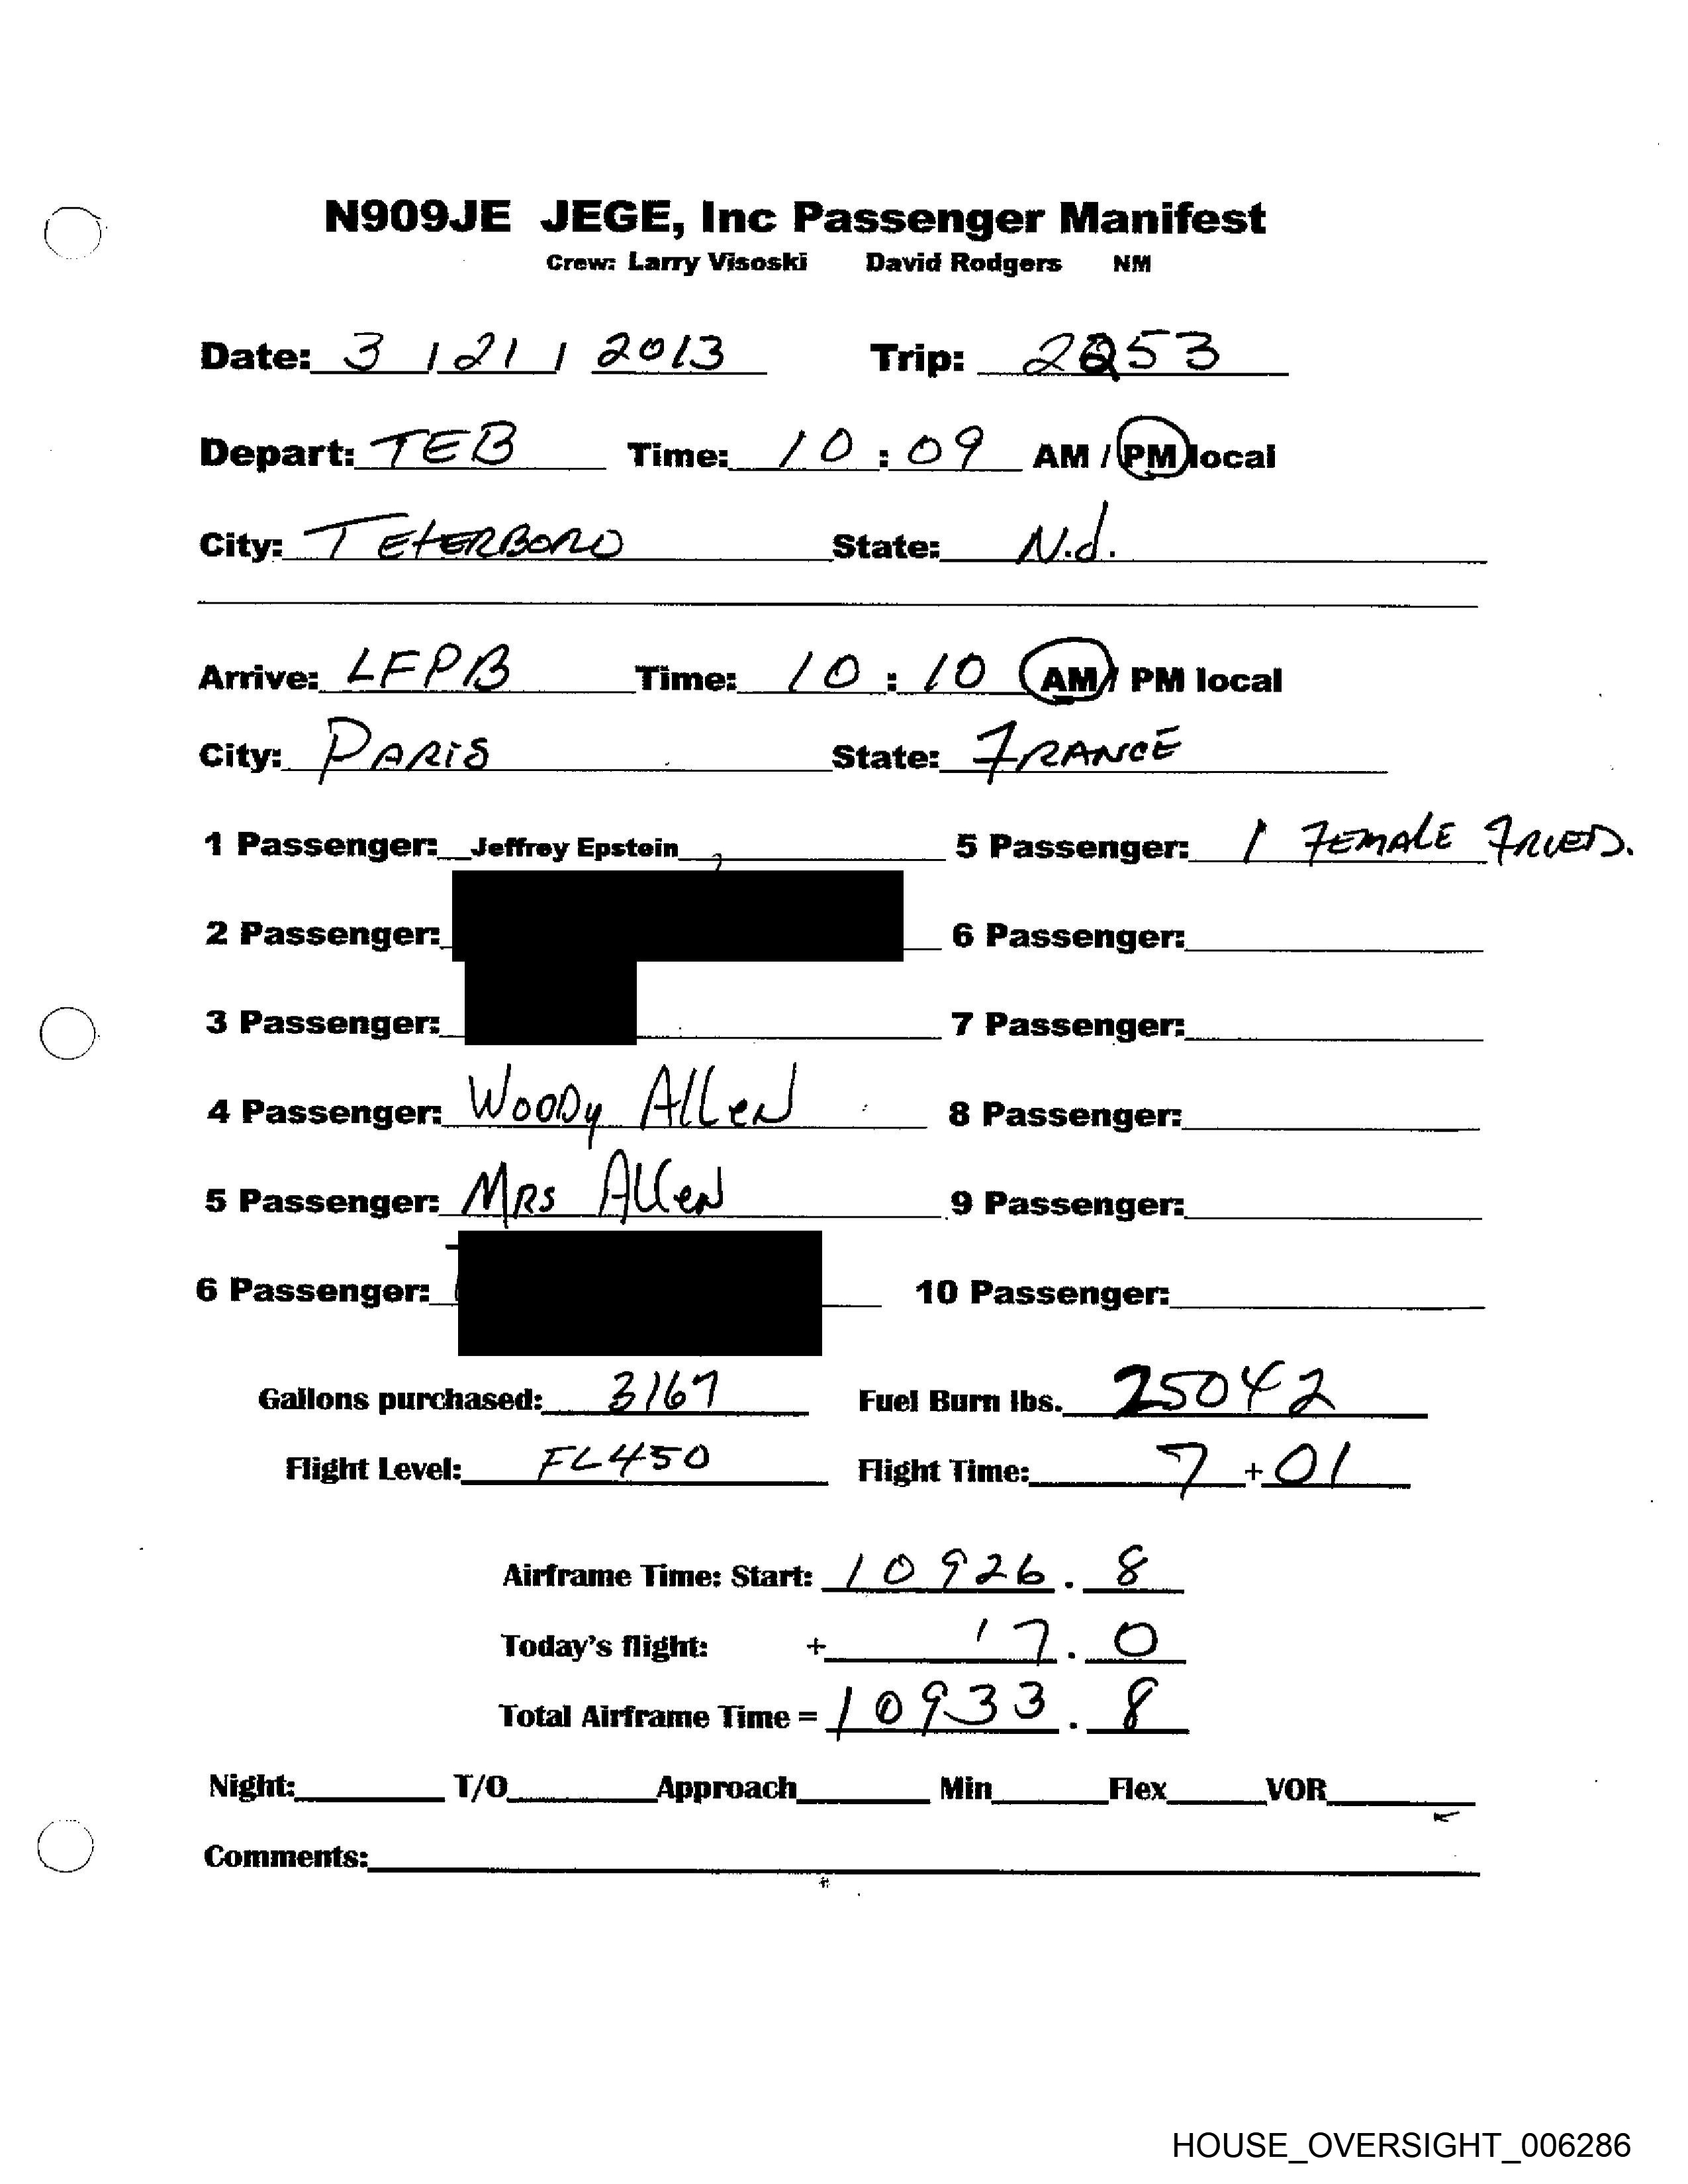 N909JE JEGE, Inc Passenger Manifest
Crew: Larry Visoski David Rodgers NM
Date: 3 / 21 / 2013 Trip: 2253
Depart: TEB Time: 10 : 09 AM / PM local
City: TETERBORO State: N.J.
Arrive: LFPB Time: 10 : 10 AM / PM local
City: PARIS State: FRANCE
1 Passenger: Jeffrey Epstein 5 Passenger: 1 FEMALE FRIED.
2 Passenger: 6 Passenger:
3 Passenger: 7 Passenger:
4 Passenger: Woody Allen 8 Passenger:
5 Passenger: Mrs Allen 9 Passenger:
6 Passenger: 10 Passenger:
Gallons purchased: 3167 Fuel Burn lbs. 25042
Flight Level: FL450 Flight Time: 7 + 01
Airframe Time: Start: 10926.8
Today's flight: + 7.0
Total Airframe Time = 10933.8
Night: T/O Approach Min Flex VOR
Comments:
HOUSE_OVERSIGHT_006286